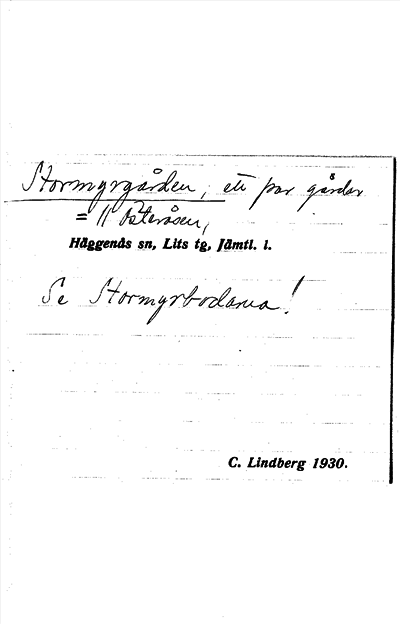 Stormyrgården, ett par gårdar
= // Österåsen,
Häggenås sn, Lits tg, Jämtl. l.
Se Stormyrbodarna!
C. Lindberg 1930.